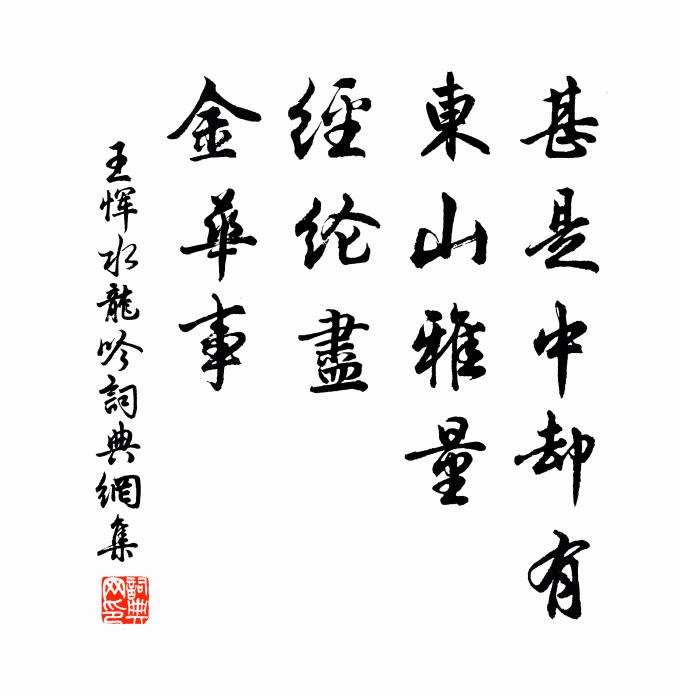 甚是中却有
東山雅量
經纶盡
金華事
王惲水龍吟詞典網集
詞典網印